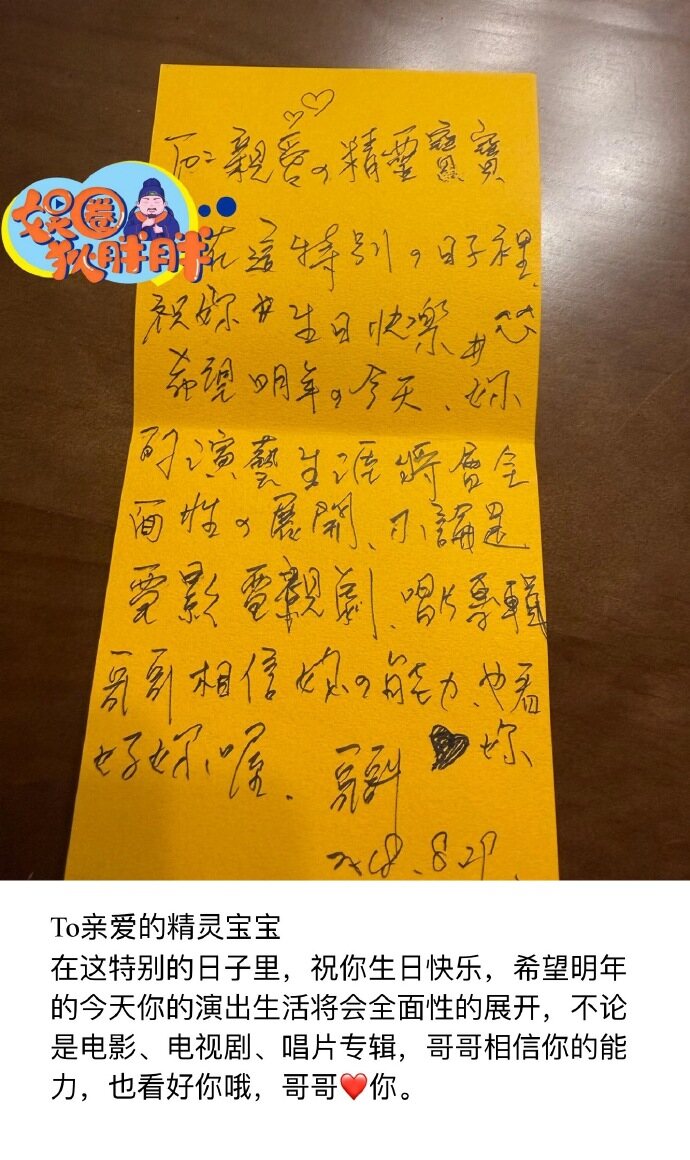 To:親愛の精靈寶寶
娱圈
狄胖胖
在這特別の日子裡、
祝妳#生日快樂#
希望明年の今天、妳
的演藝生涯將會全
面性の展開、不論是
電影電視劇、唱片專輯
哥哥相信妳の能力、也看
好妳、喔、哥哥♥妳
To亲爱的精灵宝宝
在这特别的日子里，祝你生日快乐，希望明年
的今天你的演出生活将会全面性的展开，不论
是电影、电视剧、唱片专辑，哥哥相信你的能
力，也看好你哦，哥哥❤️你。